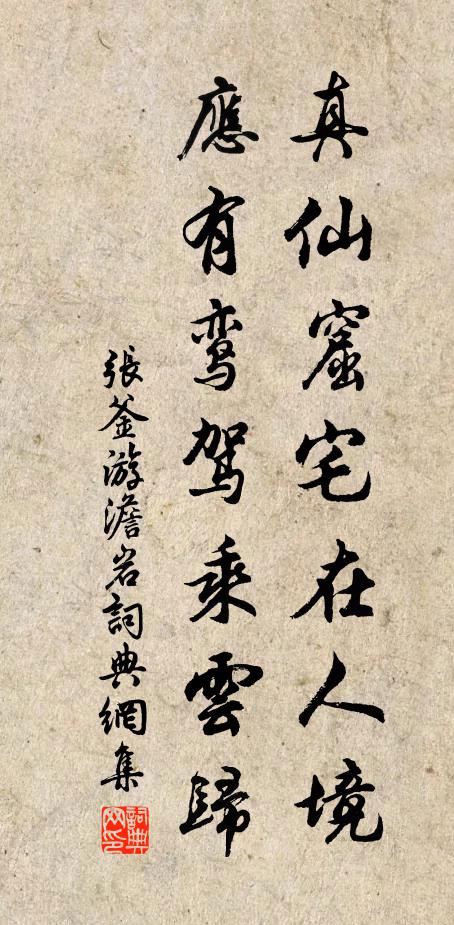 真仙窟宅在人境
應有鸾駕乘雲歸
張釜游澹岩詞典網集
詞典网印